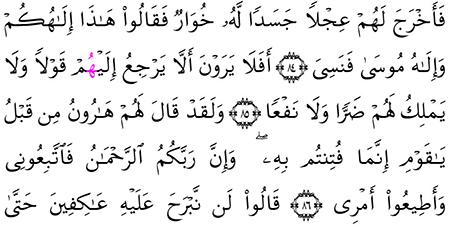 فَأَخْرَجَ لَهُمْ عِجْلًا جَسَدًا لَّهُۥ خُوَارٌ فَقَالُوا۟ هَـٰذَا إِلَـٰهُكُمْ
وَإِلَـٰهُ مُوسَىٰ فَنَسِىَ ﴿٨٤﴾ أَفَلَا يَرَوْنَ أَلَّا يَرْجِعُ إِلَيْهُمْ قَوْلًا وَلَا
يَمْلِكُ لَهُمْ ضَرًّا وَلَا نَفْعًا ﴿٨٥﴾ وَلَقَدْ قَالَ لَهُمْ هَـٰرُونُ مِن قَبْلُ
يَـٰقَوْمِ إِنَّمَا فُتِنتُم بِهِۦ ۖ وَإِنَّ رَبَّكُمُ ٱلرَّحْمَـٰنُ فَٱتَّبِعُونِى
وَأَطِيعُوٓا۟ أَمْرِى ﴿٨٦﴾ قَالُوا۟ لَن نَّبْرَحَ عَلَيْهِ عَـٰكِفِينَ حَتَّىٰ